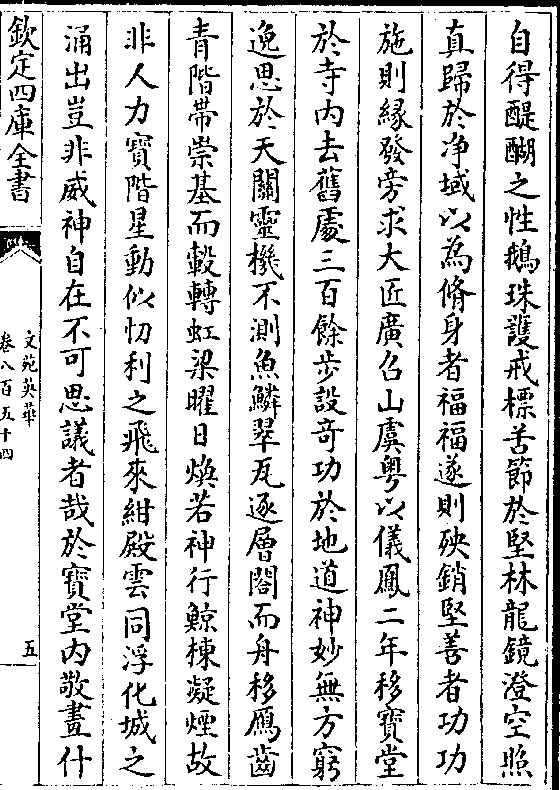 自得醍醐之性鵝珠護戒標苦節於堅林龍鏡澄空照
真歸於净域以為脩身者福福遂則殃銷堅善者功功
施則緣發旁求大匠廣召山虞粤以儀鳳二年移寶堂
於寺内去舊處三百餘步設竒功於地道神妙無方窮
逸思於天關靈機不測魚鱗翠瓦逐層閣而舟移鴈齒
青階帶崇基而轂轉虹梁曜日煥若神行鯨棟凝煙故
非人力寶階星動似忉利之飛來紺殿雲同浮化城之
涌出豈非威神自在不可思議者哉於寶堂内敬畫什
欽定四庫全書
文苑英華
卷八百五十四
五